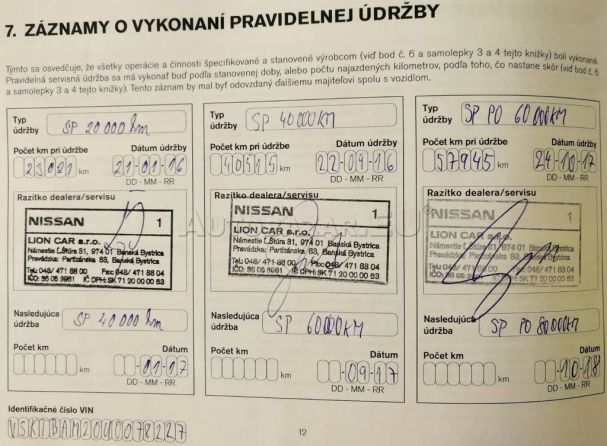 7. ZÁZNAMY O VYKONANÍ PRAVIDELNEJ ÚDRŽBY
Týmto sa osvedčuje, že všetky operácie a činnosti špecifikované a stanovené výrobcom (viď bod č. 6 a samolepky 3 a 4 tejto knižky) boli vykonané.
Pravidelná servisná údržba sa má vykonať buď podľa stanovenej doby, alebo počtu najazdených kilometrov, podľa toho, čo nastane skôr (viď bod č. 6
a samolepky 3 a 4 tejto knižky). Tento záznam by mal byť odovzdaný ďalšiemu majiteľovi spolu s vozidlom.
Typ údržby SP 20 000 km
Počet km pri údržbe Dátum údržby
23021 km 21-01-16
DD - MM - RR
Razítko dealera/servisu
NISSAN 1
LION CAR s.r.o.
Námestie Ľ.Štúra 31, 974 01 Banská Bystrica
Prevádzka: Partizánska 83, Banská Bystrica
Tel.: 048/ 471 88 00 Fax: 048/ 471 88 04
IČO: 36 05 5961 IČ DPH: SK 71 20 00 00 63
Nasledujúca údržba SP 40 000 km
Počet km Dátum
km 01-17
DD - MM - RR
Typ údržby SP 40 000 KM
Počet km pri údržbe Dátum údržby
40315 km 22-09-16
DD - MM - RR
Razítko dealera/servisu
NISSAN 1
LION CAR s.r.o.
Námestie Ľ.Štúra 31, 974 01 Banská Bystrica
Prevádzka: Partizánska 83, Banská Bystrica
Tel.: 048/ 471 88 00 Fax: 048/ 471 88 04
IČ DPH: SK 71 20 00 00 63
Nasledujúca údržba SP 60000 KM
Počet km Dátum
km 09-17
DD - MM - RR
Typ údržby SP PO 60 000KM
Počet km pri údržbe Dátum údržby
57945 km 24-10-17
DD - MM - RR
Razítko dealera/servisu
NISSAN 1
LION CAR s.r.o.
Námestie Ľ.Štúra 31, 974 01 Banská Bystrica
Prevádzka: Partizánska 83, Banská Bystrica
Tel.: 048/ 471 88 00
Nasledujúca údržba SP PO 80000KM
Počet km Dátum
km 10-18
DD - MM - RR
Identifikačné číslo VIN
12